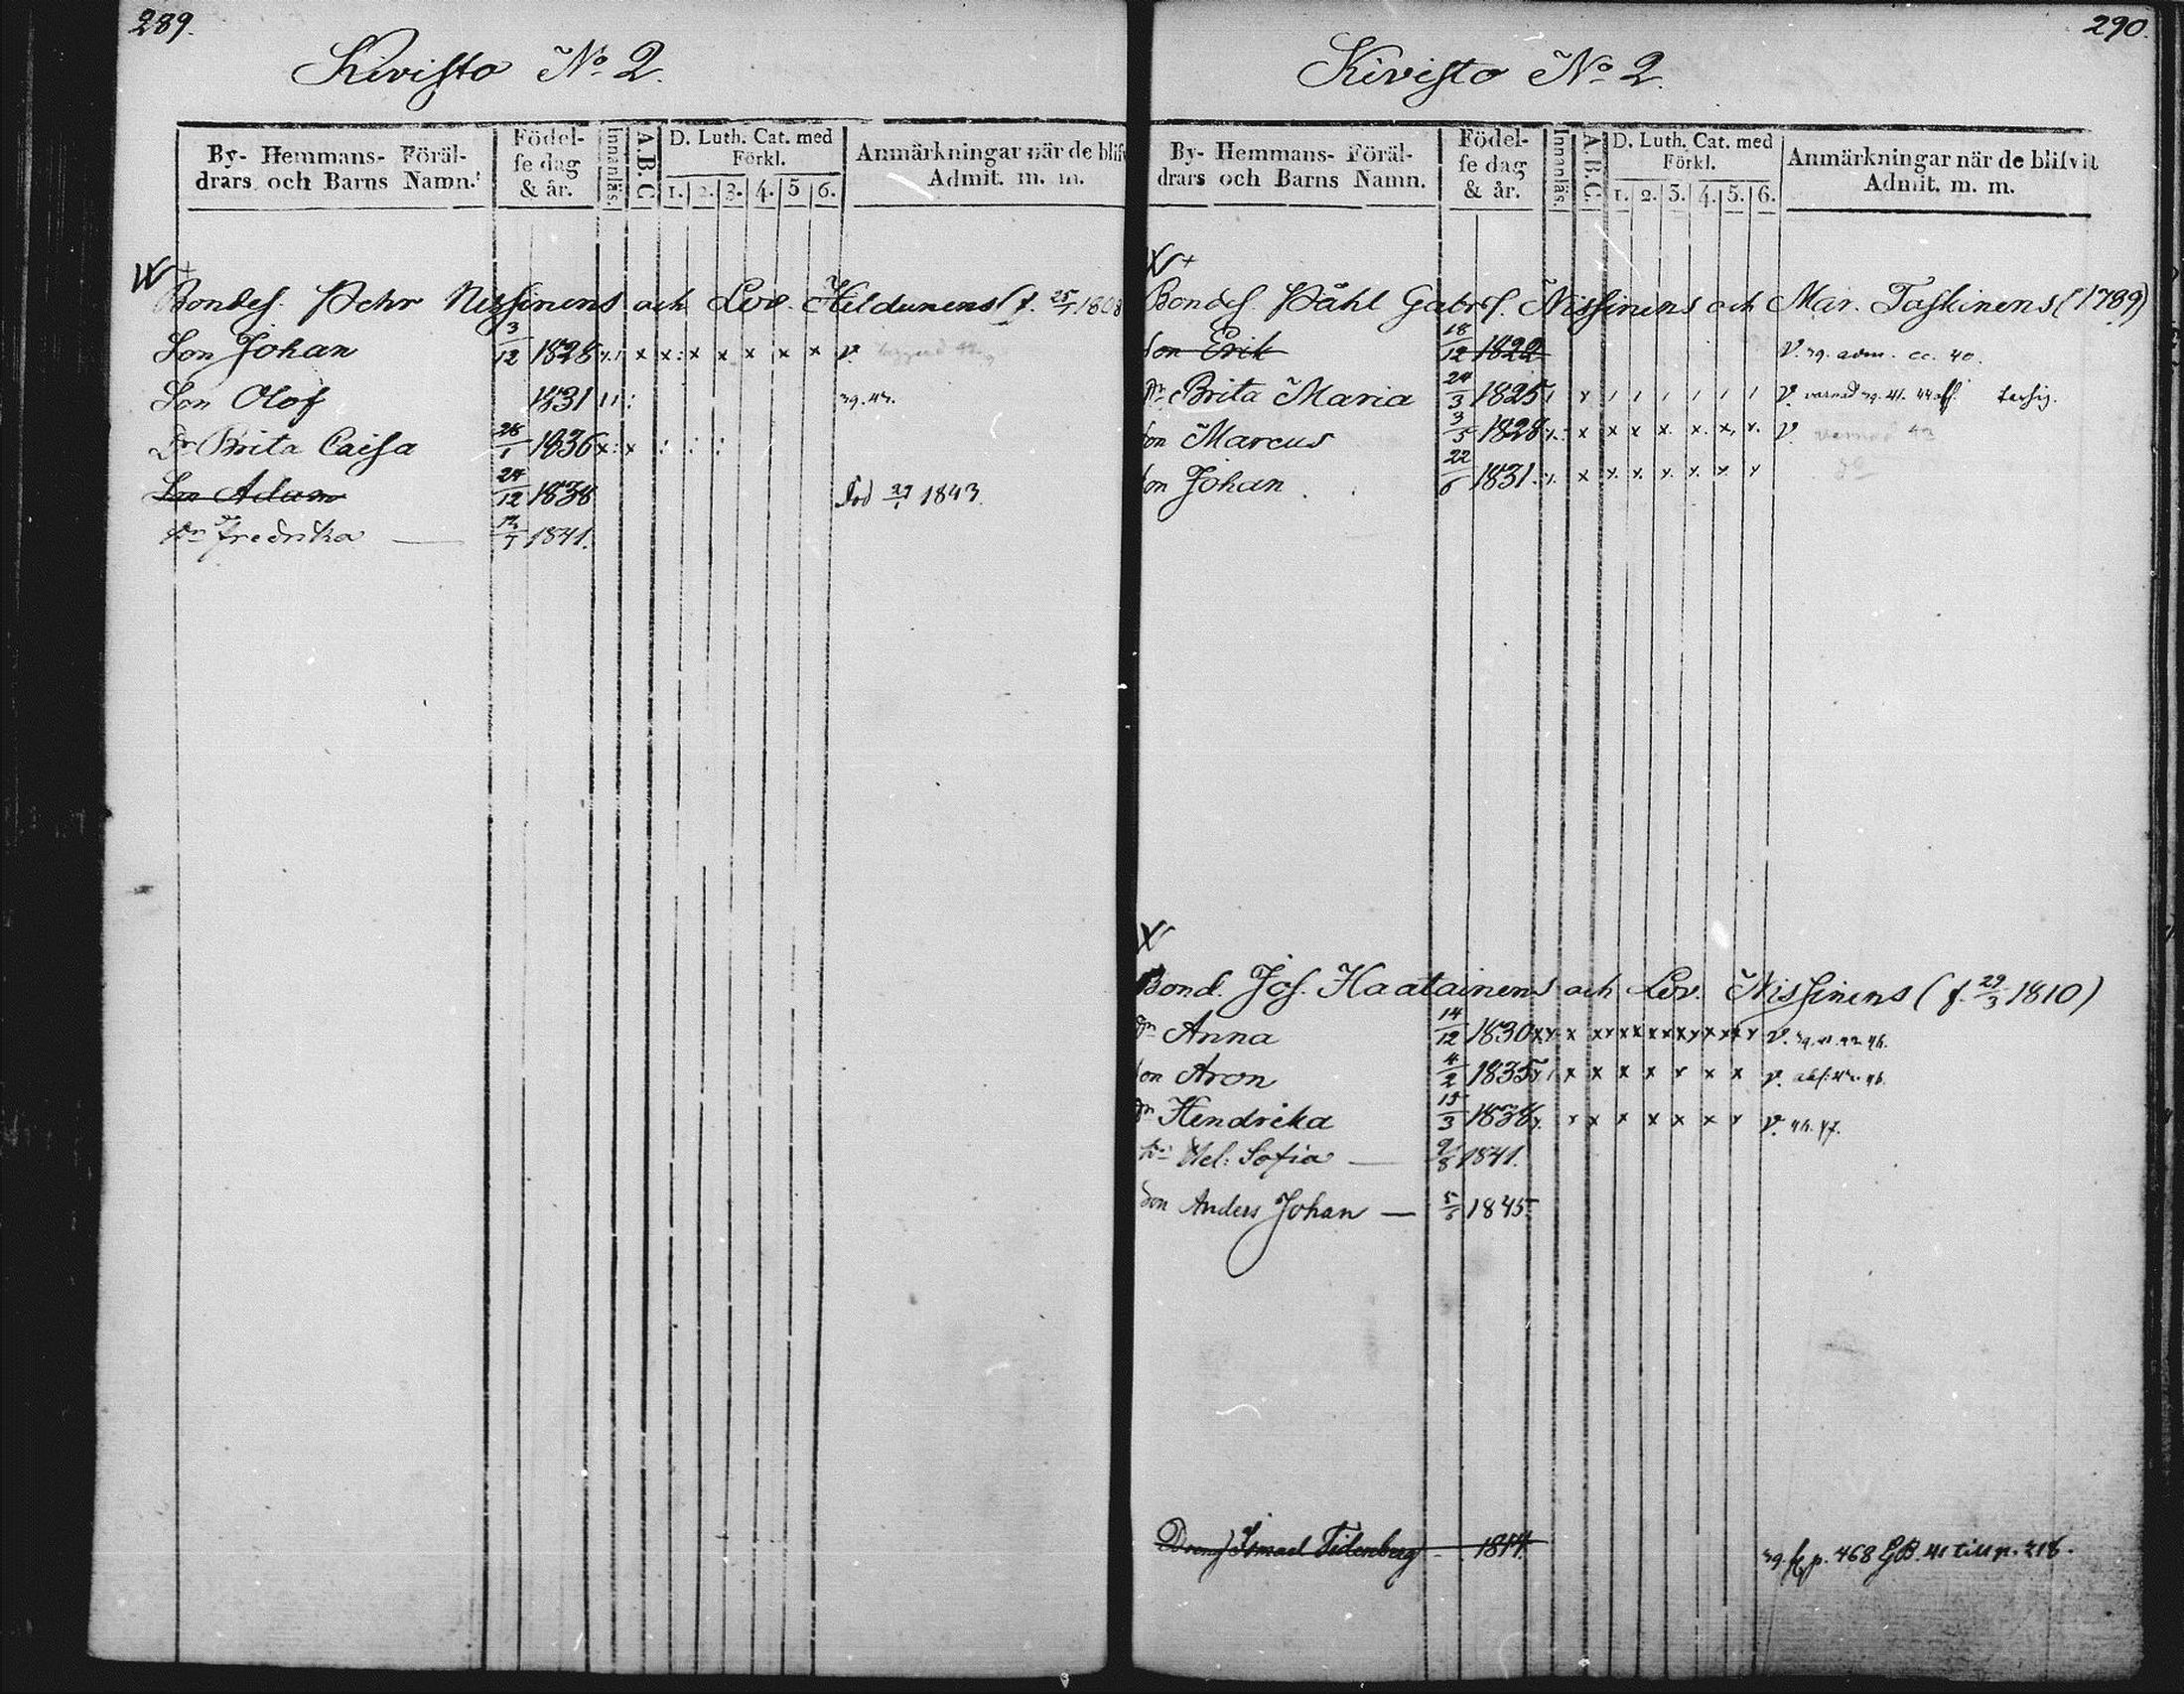 289.
Kivisto No 2.
By- Hemmans- Föräl-
drars och Barns Namn.
Födel-
se dag
& år.
Innanläs.
A.B.C
D. Luth. Cat. med
Förkl.
1. 2. 3. 4. 5 6.
Anmärkningar när de blifv
Admit. m. m.
Bondes. Pehr Nissinens och Lov. Heldunens (f. 25/ 1808
Son Johan 3/12 1828 x x x x x x x v.
Son Olof 1831 39. 43.
Dr Brita Caisa 28/1 1836
Son Adam 24/12 1838 Död 27/ 1843.
Dr Fredrika — 1841.
290.
Kivisto No 2.
By- Hemmans- Föräl-
drars och Barns Namn.
Födel-
se dag
& år.
Innanläs.
A.B.C
D. Luth. Cat. med
Förkl.
1. 2. 3. 4. 5. 6.
Anmärkningar när de blifvit
Admit. m. m.
Bondes. Påhl Gabr.s. Nissinens och Mar. Taskinens (1789)
Son Erik 18/12 1822 V. 39. adm. 40.
Dr Brita Maria 24/3 1825 V. varnad 39. 41.
Son Marcus 3/5 1828 x x x x x x x V.
Son Johan 22/6 1831. x x x x x x x
Bond. Jos. Haatainens och Lov. Nissinens (f. 29/3 1810)
Dr Anna 14/12 1830 V. 39.
Son Aron 4/2 1835 x x x x x x x V.
Dr Hendrika 15/3 1838 x x x x x x x V. 46. 47.
Dr Hel: Sofia — 9/8 1841.
Son Anders Johan — 5/6 1845.
Dreng Ismael Tidenberg 1814. 39. fr p. 468 GB. 41 till p. 218.